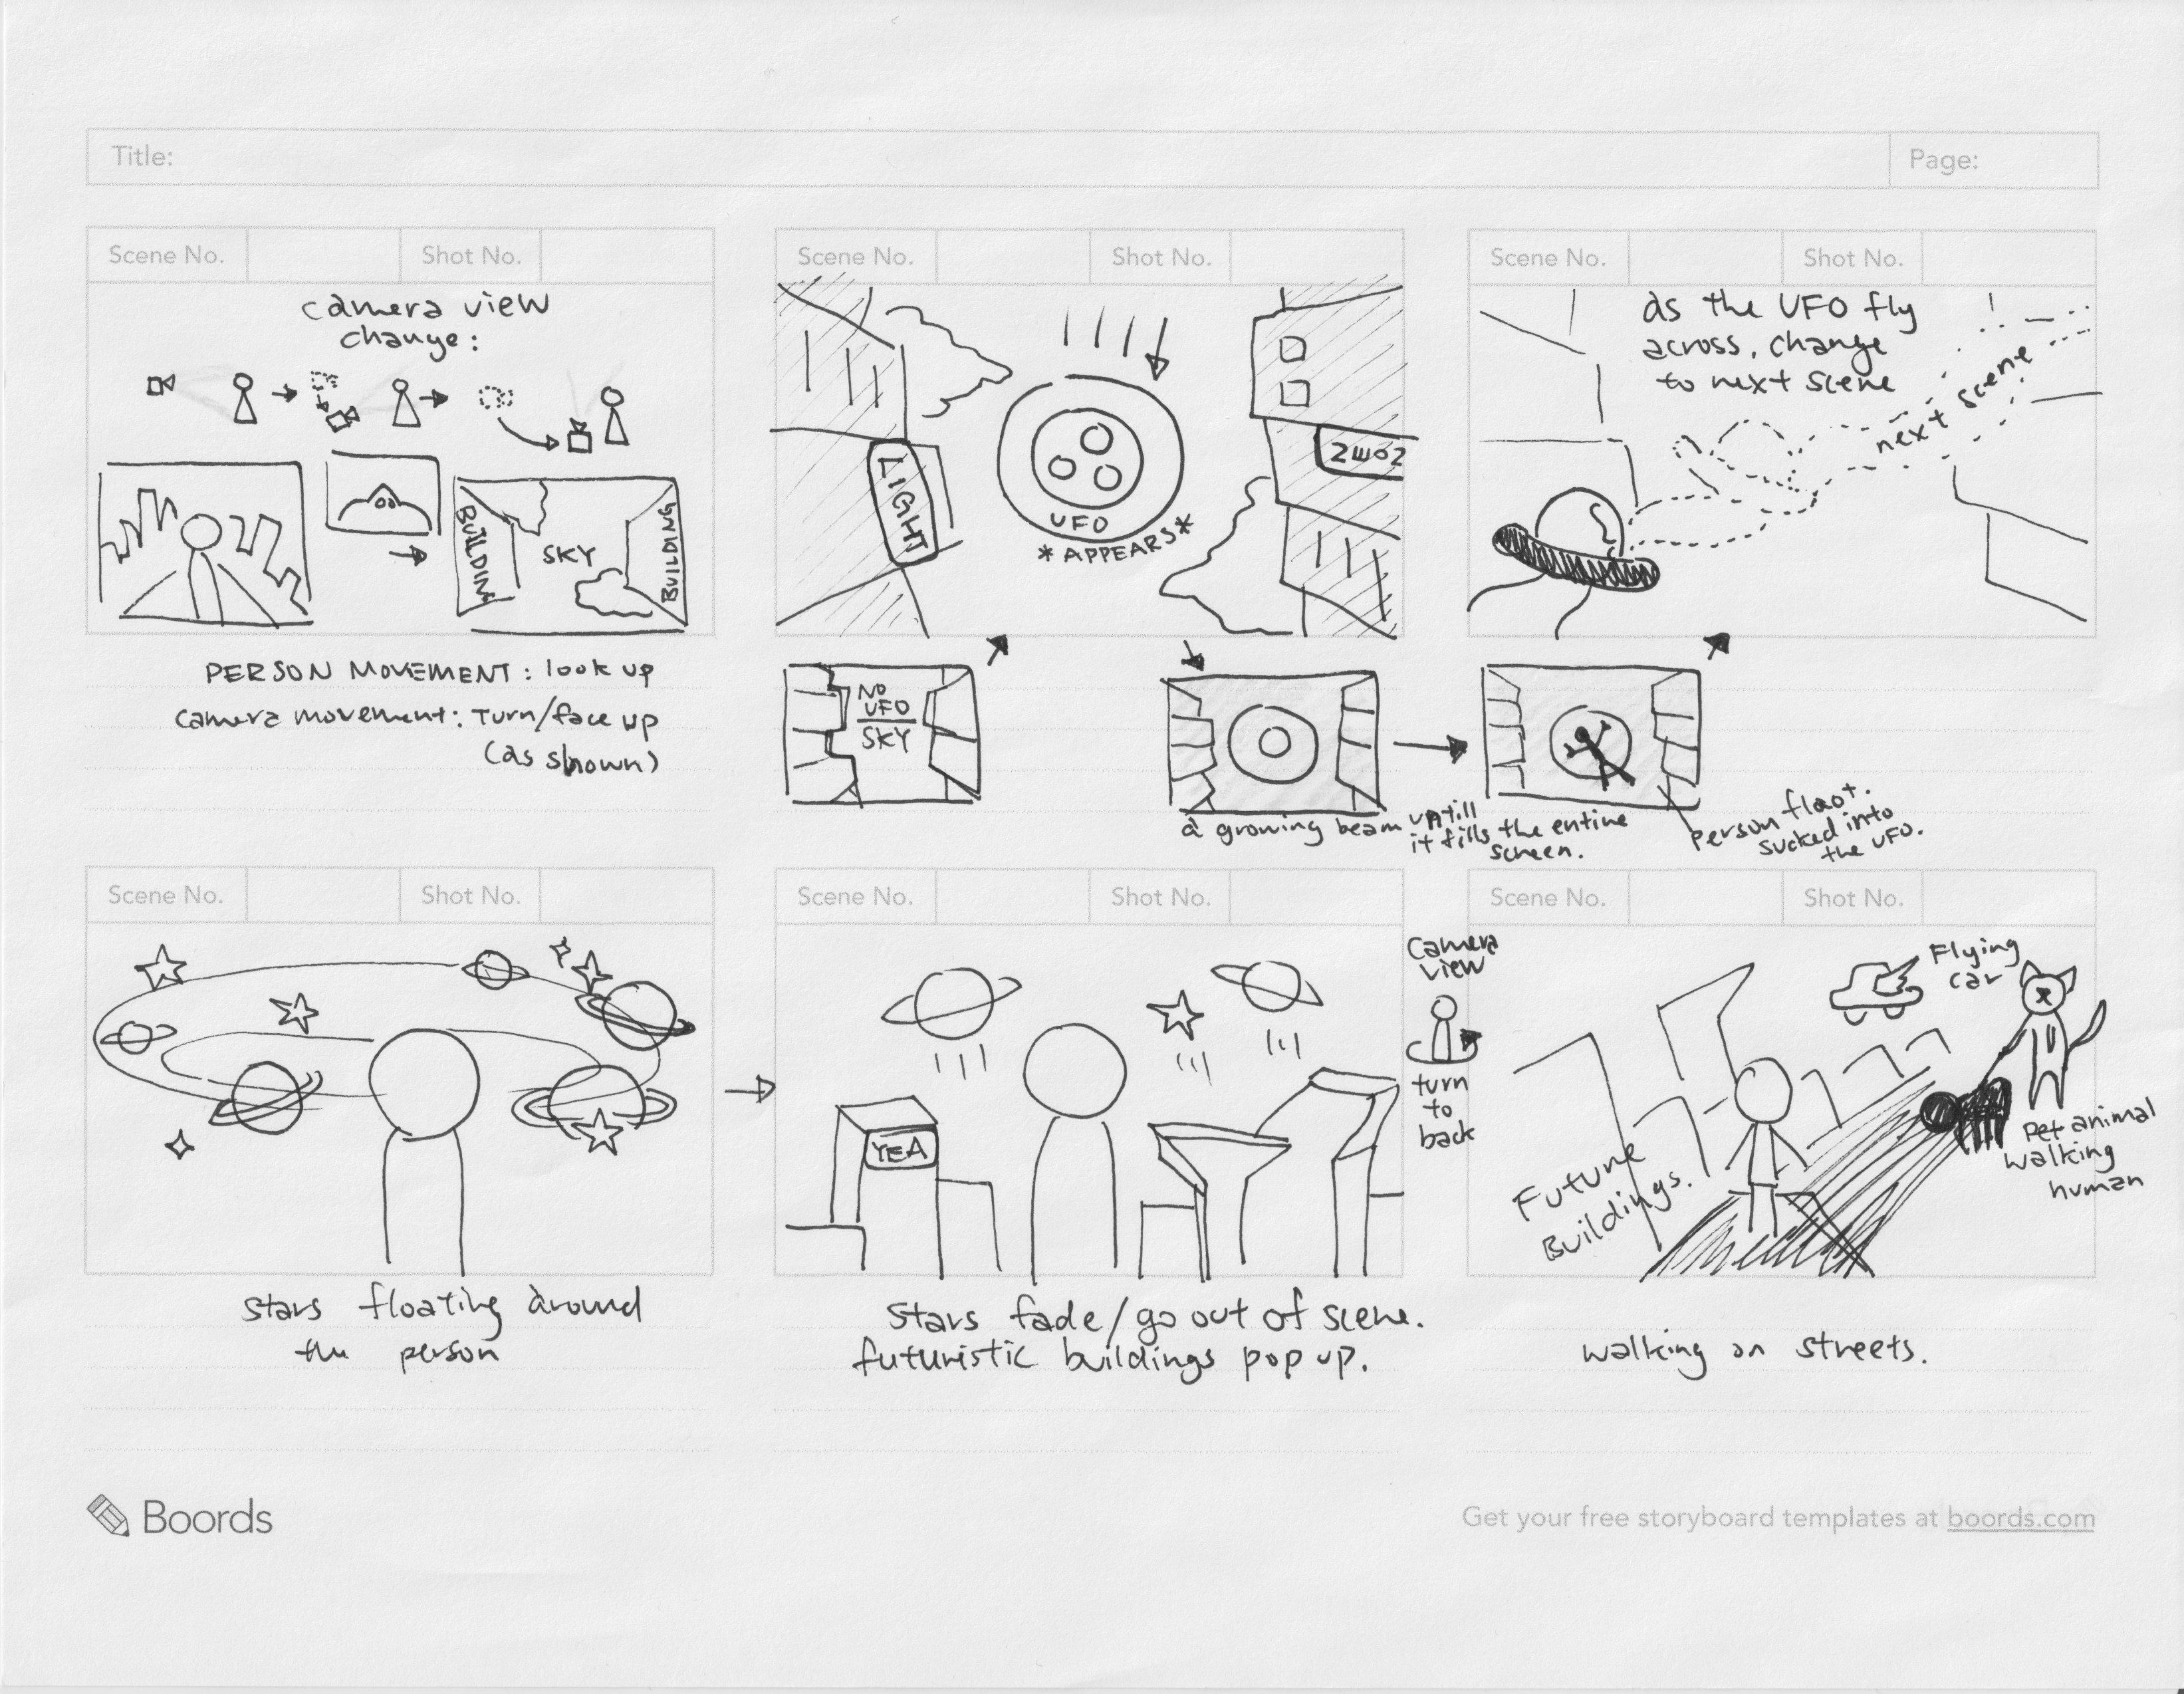 Title:
Page:
Scene No.
Shot No.
camera view
change:
BUILDING
SKY
BUILDING
PERSON MOVEMENT: look up
camera movement: Turn/face up
(as shown)
Scene No.
Shot No.
LIGHT
UFO
*APPEARS*
NO
UFO
SKY
a growing beam untill
it fills the entire
screen.
Scene No.
Shot No.
as the UFO fly
across, change
to next scene
next scene
person flaot.
sucked into
the UFO.
Scene No.
Shot No.
stars floating around
the person
Scene No.
Shot No.
YEA
stars fade/go out of scene.
futuristic buildings pop up.
camera
view
turn
to
back
Scene No.
Shot No.
Flying
car
Pet animal
walking
human
Future
Buildings.
walking on streets.
Boords
Get your free storyboard templates at boords.com